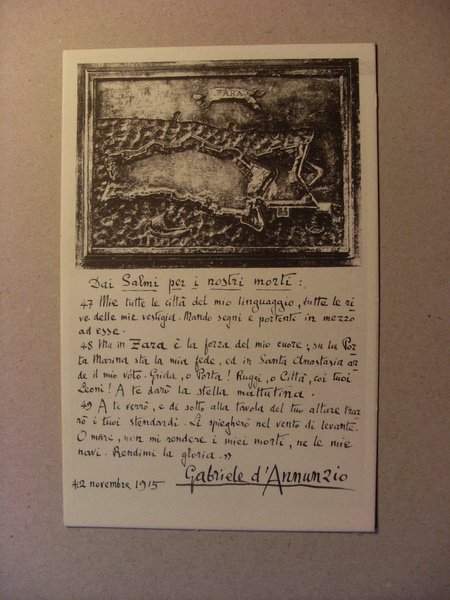 ZARA
Dai Salmi per i nostri morti :
47 Mie tutte le città del mio linguaggio, tutte le ri=
ve delle mie vestigia. Mando segni e portenti in mezzo
ad esse.
48 Ma in Zara è la forza del mio cuore; su la Por=
ta Marina sta la mia fede, ed in Santa Anastasia ar=
de il mio voto. Grida, o Porta! Ruggi, o Città, coi tuoi
Leoni! A te darò la stella mattutina.
49 A te verrò, e di sotto alla tavola del tuo altare trar=
rò i tuoi stendardi. Li spiegherò nel vento di levante.
O mare, non mi rendere i miei morti, ne le mie
navi. Rendimi la gloria.»
2 novembre 1915 Gabriele d'Annunzio